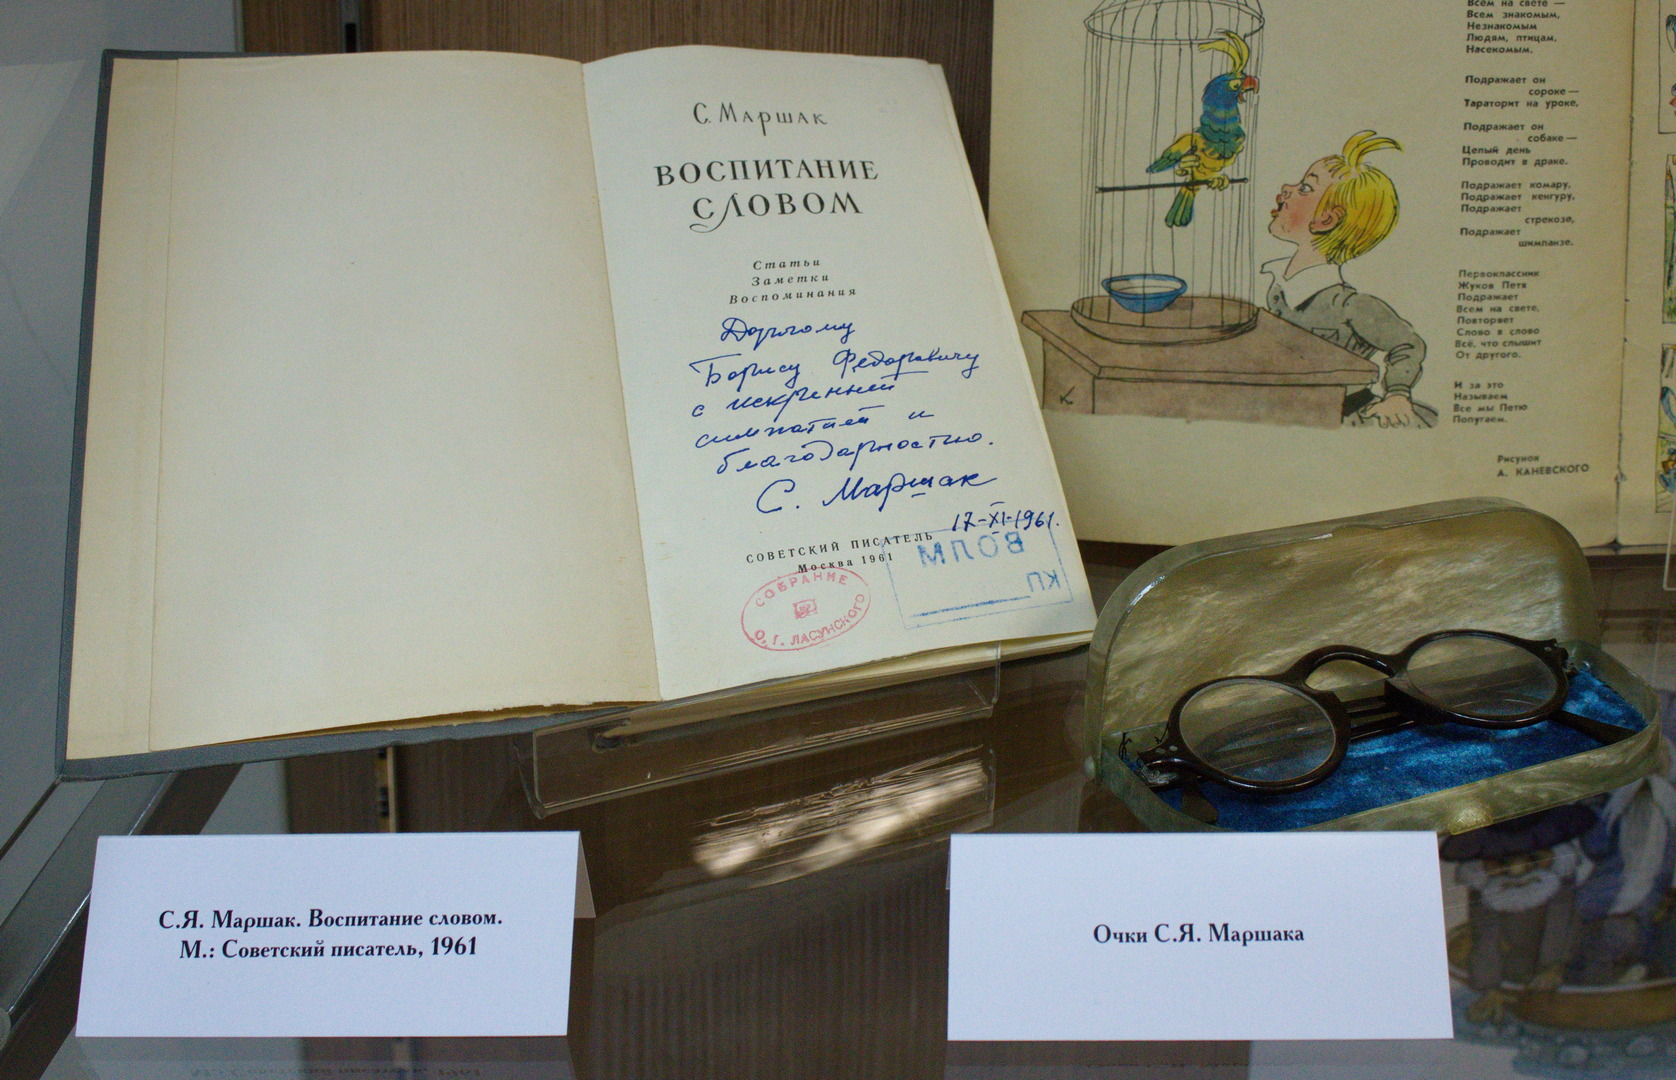 С. Маршак
ВОСПИТАНИЕ
СЛОВОМ
Статьи
Заметки
Воспоминания
Дорогому
Борису Федоровичу
с искренней
симпатией и
благодарностью.
С. Маршак
17-XI-1961.
СОВЕТСКИЙ ПИСАТЕЛЬ
Москва 1961
СОБРАНИЕ
О. Г. ЛАСУНСКОГО
МПОВ
КП
Всем на свете —
Всем знакомым,
Незнакомым
Людям, птицам,
Насекомым.
Подражает он
сороке —
Тараторит на уроке,
Подражает он
собаке —
Целый день
Проводит в драке.
Подражает комару,
Подражает кенгуру,
Подражает
стрекозе,
Подражает
шимпанзе.
Первоклассник
Жуков Петя
Подражает
Всем на свете,
Повторяет
Слово в слово
Всё, что слышит
От другого.
И за это
Называем
Все мы Петю
Попугаем.
Рисунок
А. КАНЕВСКОГО
К
С.Я. Маршак. Воспитание словом.
М.: Советский писатель, 1961
Очки С.Я. Маршака